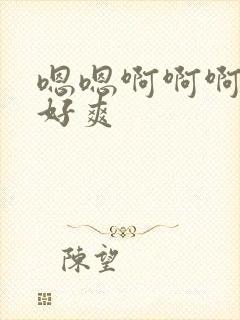 嗯嗯啊啊啊
好爽
陳望